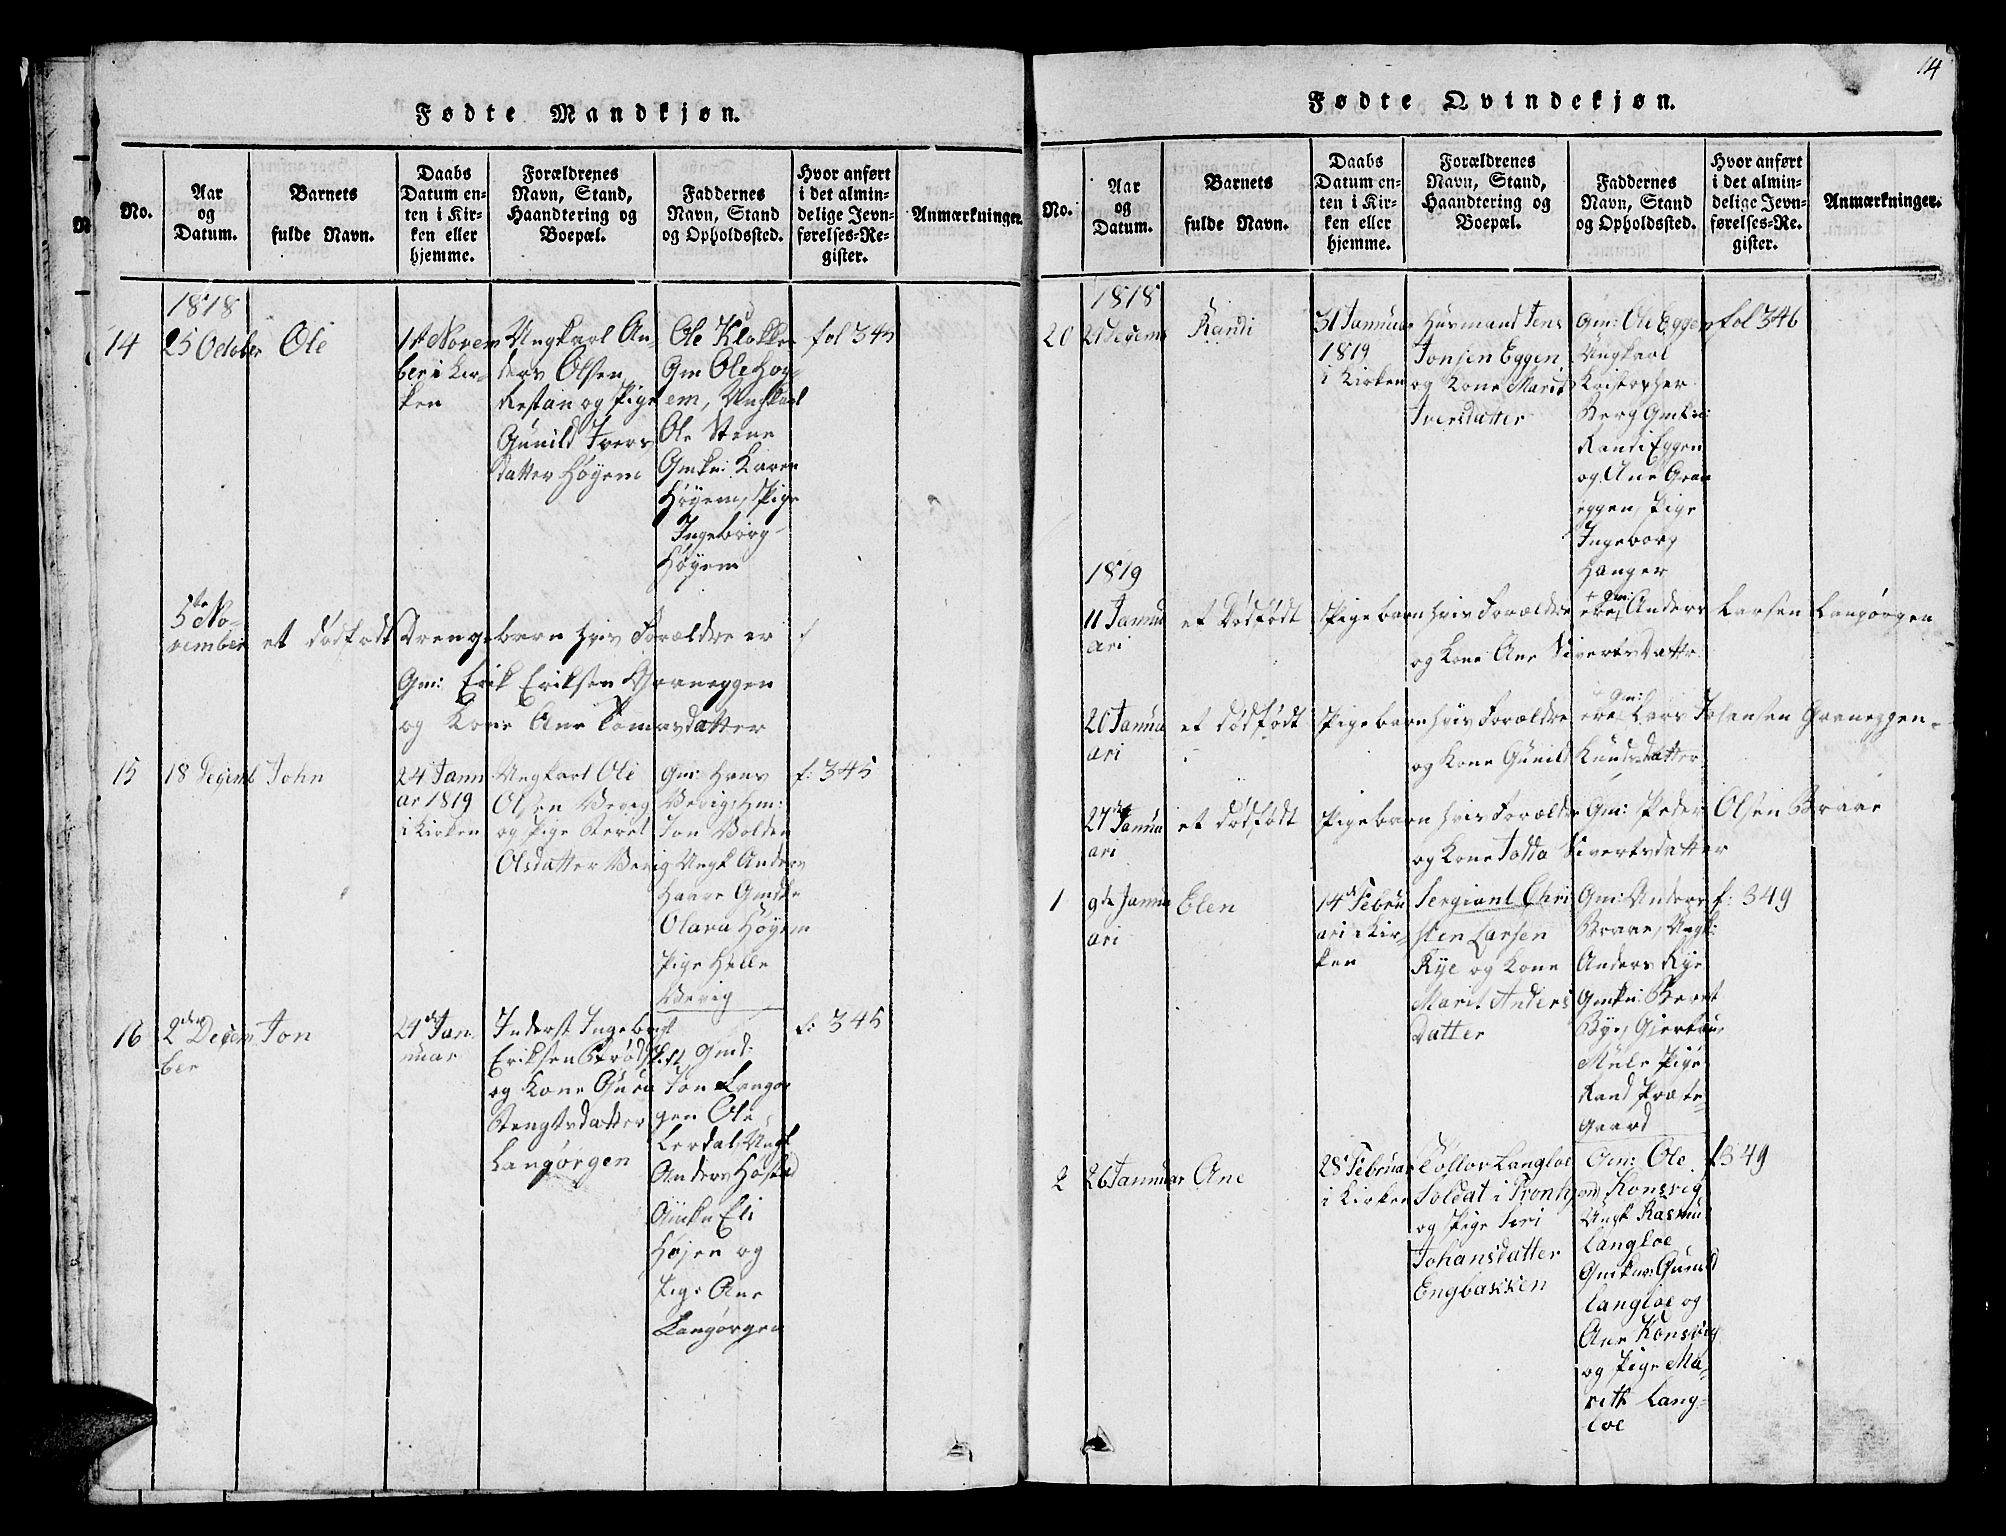 14
Fødte Mandkjøn.
No.
Aar
og
Datum.
Barnets
fulde Navn.
Daabs
Datum en-
ten i Kir-
ken eller
hjemme.
Forældrenes
Navn, Stand,
Haandtering og
Boepæl.
Faddernes
Navn, Stand
og Opholdssted.
Hvor anført
i det almin-
delige Jevn-
førelses-Re-
gister.
Anmærkninger.
1818
14
25 October
Ole
1st Novem
ber i Kir-
ken
Ungkarl An-
ders Olsen
Restan og Pige
Gunild Ivers
datter Høyem
Ole Klokker
Gm Ole Høy-
em, Ungkarl
Ole Stene
Gmkn: Karen
Høyem, Pige
Ingeborg
Høyem
fol 345
5te No-
vember
et dødfødt Drengebarn hvis Forældre er
Gm: Erik Eriksen Graneggen
og Kone Ane Tomasdatter
15
18 Decemb
John
24 Janu
ar 1819
i Kirken
Ungkarl Ole
Olsen Bevig
og Pige Beret
Olsdatter Bevig
Gm: Hans
Bevig, Hm:
Jon Volden
Ungk Anders
Haave Gmdko
Olava Høyem
Pige Helle
Bevig
f: 345
16
2den Decem
ber
Jon
24de Jan
nuar
Inderst Ingebrigt
Eriksen Brødskift
og Kone Guru
Bengtsdatter
Langørgen
Gmd:
Jon Langør
gen Ole
Lerdal, Ungk
Anders Hofstad
Gmkn Eli
Højen og
Pige Ane
Langørgen
f: 345
Fødte Qvindekjøn.
No.
Aar
og
Datum.
Barnets
fulde Navn.
Daabs
Datum en-
ten i Kir-
ken eller
hjemme.
Forældrenes
Navn, Stand,
Haandtering og
Boepæl.
Faddernes
Navn, Stand
og Opholdssted.
Hvor anført
i det almin-
delige Jevn-
førelses-Re-
gister.
Anmærkninger.
1818
20
Randi
31 Januar
1819
i Kirken
Husmand Jens
Jonsen Eggen
og Kone Marit
Iversdatter
Gm: Ole Eggen
Ungkarl
Kristopher
Berg Gmkn:
Randi Eggen
og Ane Gran
eggen, Pige
Ingeborg
Hanger
fol 346
1819
11 Janu
ari
et Dødfødt Pigebarn hvis Forældre ere Gm: Anders Larsen Langørgen
og Kone Ane Sivertsdatter
20 Janu
ari
et dødfødt Pigebarn hvis Forældre ere Gm: Lars Johansen Graneggen
og Kone Gunild Knudsdatter
27de Janu
ari
et dødfødt Pigebarn hvis Forældre Gm: Peder Olsen Braae
og Kone Sivertsdatter
1
9de Janu
ari
Elen
14de Febru
ari i Kir-
ken
Sergiant Chri
sten Larsen
Rye og Kone
Marit Anders
datter
Gm: Anders
Braae, Ungk:
Anders Rye
Gmkn: Beret
Bye, Gjertrud
Mule Pige
Rand Præte-
gaard
f: 349
2
26 Januar
Ane
28 Februar
i Kirken
Tollor Langloe
Soldat i Tronhj
og Pige Siri
Johansdatter
Engbakken
Gm: Ole
Konsvig
Ungk Rasmus
Langloe
Gmkn: Gunild
Langloe og
Ane Konsvig
og Pige Ma-
rith Lang-
loe
f 349